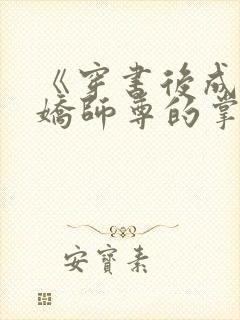 《穿書後成
嬌師尊的掌
安寶素